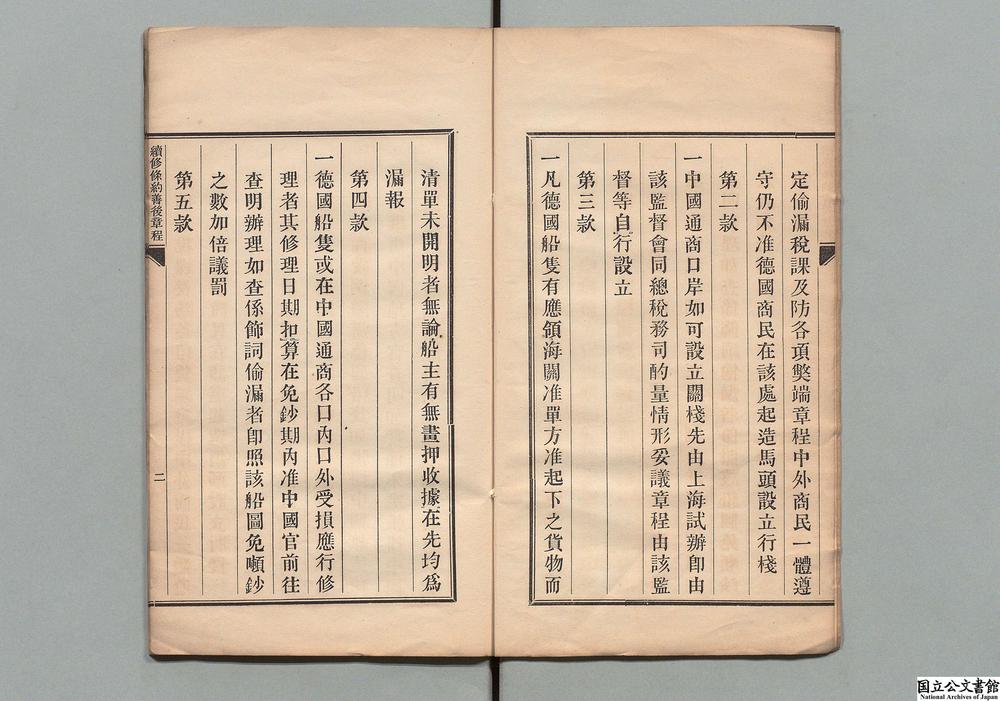 定偷漏稅課及防各項獘端章程中外商民一體遵
守仍不准德國商民在該處起造馬頭設立行棧
第二款
一中國通商口岸如可設立關棧先由上海試辦卽由
該監督會同總稅務司酌量情形妥議章程由該監
督等自行設立
第三款
一凡德國船隻有應領海關准單方准起下之貨物而
清單未開明者無論船主有無畫押收據在先均爲
漏報
第四款
一德國船隻或在中國通商各口內口外受損應行修
理者其修理日期扣算在免鈔期內准中國官前往
查明辦理如查係飾詞偷漏者卽照該船圖免噸鈔
之數加倍議罰
第五款
續修條約善後章程
二
国立公文書館
National Archives of Japan